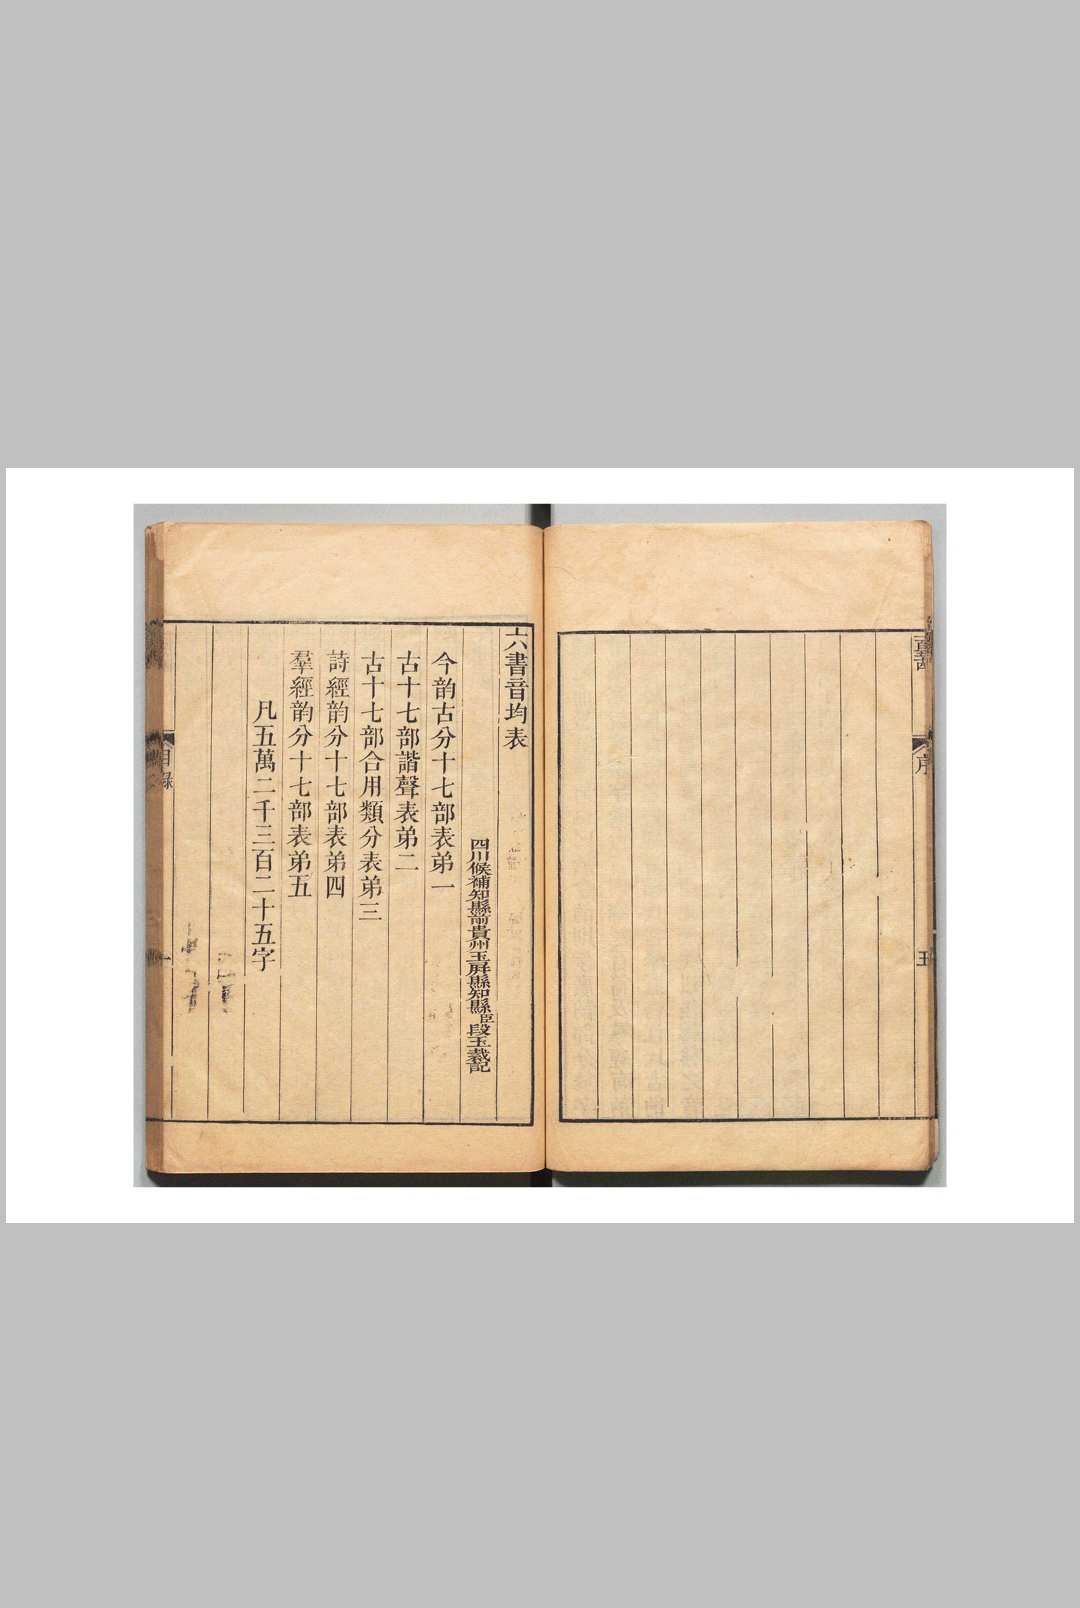 序
五
六書音均表
四川候補知縣前貴州玉屏縣知縣臣段玉裁記
今韵古分十七部表弟一
古十七部諧聲表弟二
古十七部合用類分表弟三
詩經韵分十七部表弟四
羣經韵分十七部表弟五
凡五萬二千三百二十五字
目錄
一